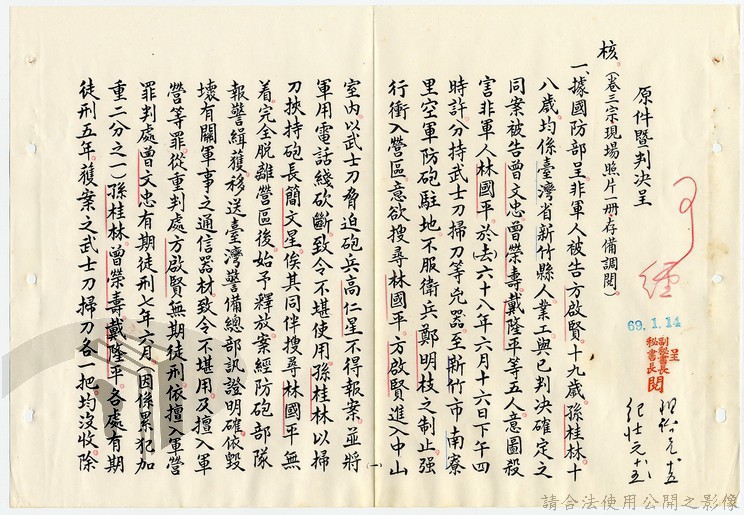 原件暨判決呈
核。(卷三宗現場照片一冊存備調閱。)
一、據國防部呈非軍人被告方啟賢十九歲孫桂林十
八歲均係臺灣省新竹縣人業工與已判決確定之
同案被告曾文忠曾榮壽戴隆平等五人意圖殺
害非軍人林國平於(去)六十八年六月十六日下午四
時許分持武士刀掃刀等兇器至新竹市南寮
里空軍防砲駐地不服衛兵鄭明枝之制止强
行衝入營區意欲搜尋林國平方啟賢進入中山
室內以武士刀脅迫砲兵高仁星不得報案並將
軍用電話綫砍斷致令不堪使用孫桂林以掃
刀挾持砲長簡文星俟其同伴搜尋林國平無
着完全脫離營區後始予釋放案經防砲部隊
報警緝獲移送臺灣警備總部訊證明確依毀
壞有關軍事之通信器材致令不堪用及擅入軍
營等罪從重判處方啟賢無期徒刑依擅入軍營
罪判處曾文忠有期徒刑七年六月(因係累犯加
重二分之一)孫桂林曾榮壽戴隆平各處有期
徒刑五年獲案之武士刀掃刀各一把均沒收除
(一)
69.1.14
呈
副秘書長
秘書長
閱
請合法使用公開之影像